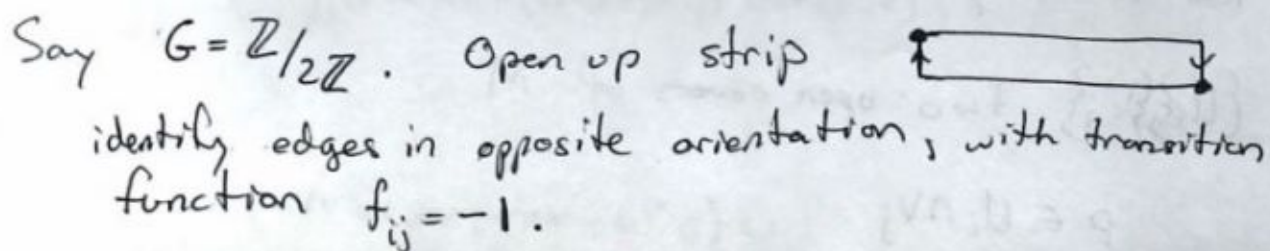 Say G = ℤ/2ℤ. Open up strip
identify edges in opposite orientation, with transition
function f_{ij} = -1.